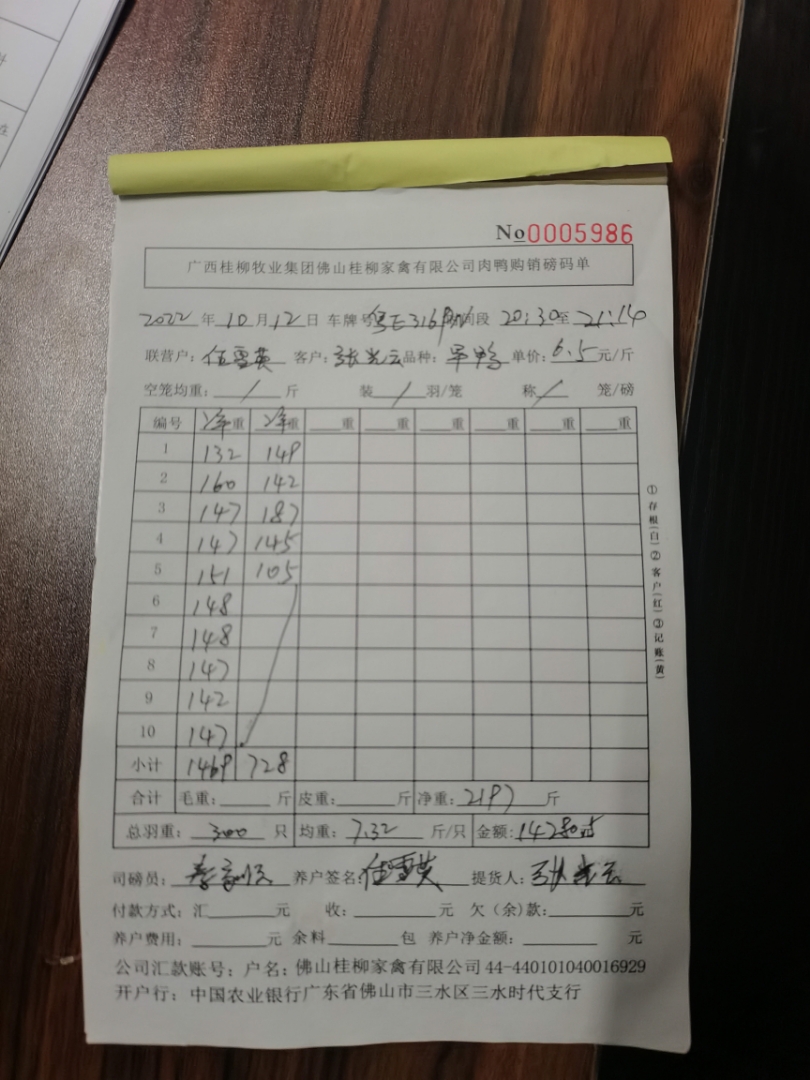 No0005986
广西桂柳牧业集团佛山桂柳家禽有限公司肉鸭购销磅码单
2022 年 10 月 12 日 车牌号 粤E316 时间段 20:30 至 21:14
联营户: 伍雪英 客户: 张光云 品种: 单鸭 单价: 6.5 元/斤
空笼均重: / 斤 装 / 羽/笼 称 / 笼/磅
编号 净重 净重 重 重 重 重 重 重
1 132 149
2 160 142
3 147 187
4 147 145
5 151 105
6 148
7 148
8 147
9 142
10 147
小计 1469 728
合计 毛重: 斤 皮重: 斤 净重: 2197 斤
总羽重: 300 只 均重: 7.32 斤/只 金额: 14280
司磅员: 养户签名: 伍雪英 提货人: 张光云
付款方式: 汇 元 收: 元 欠(余)款: 元
养户费用: 元 余料 包 养户净金额: 元
公司汇款账号: 户名: 佛山桂柳家禽有限公司 44-440101040016929
开户行: 中国农业银行广东省佛山市三水区三水时代支行
①存根(白)②客户(红)③记账(黄)